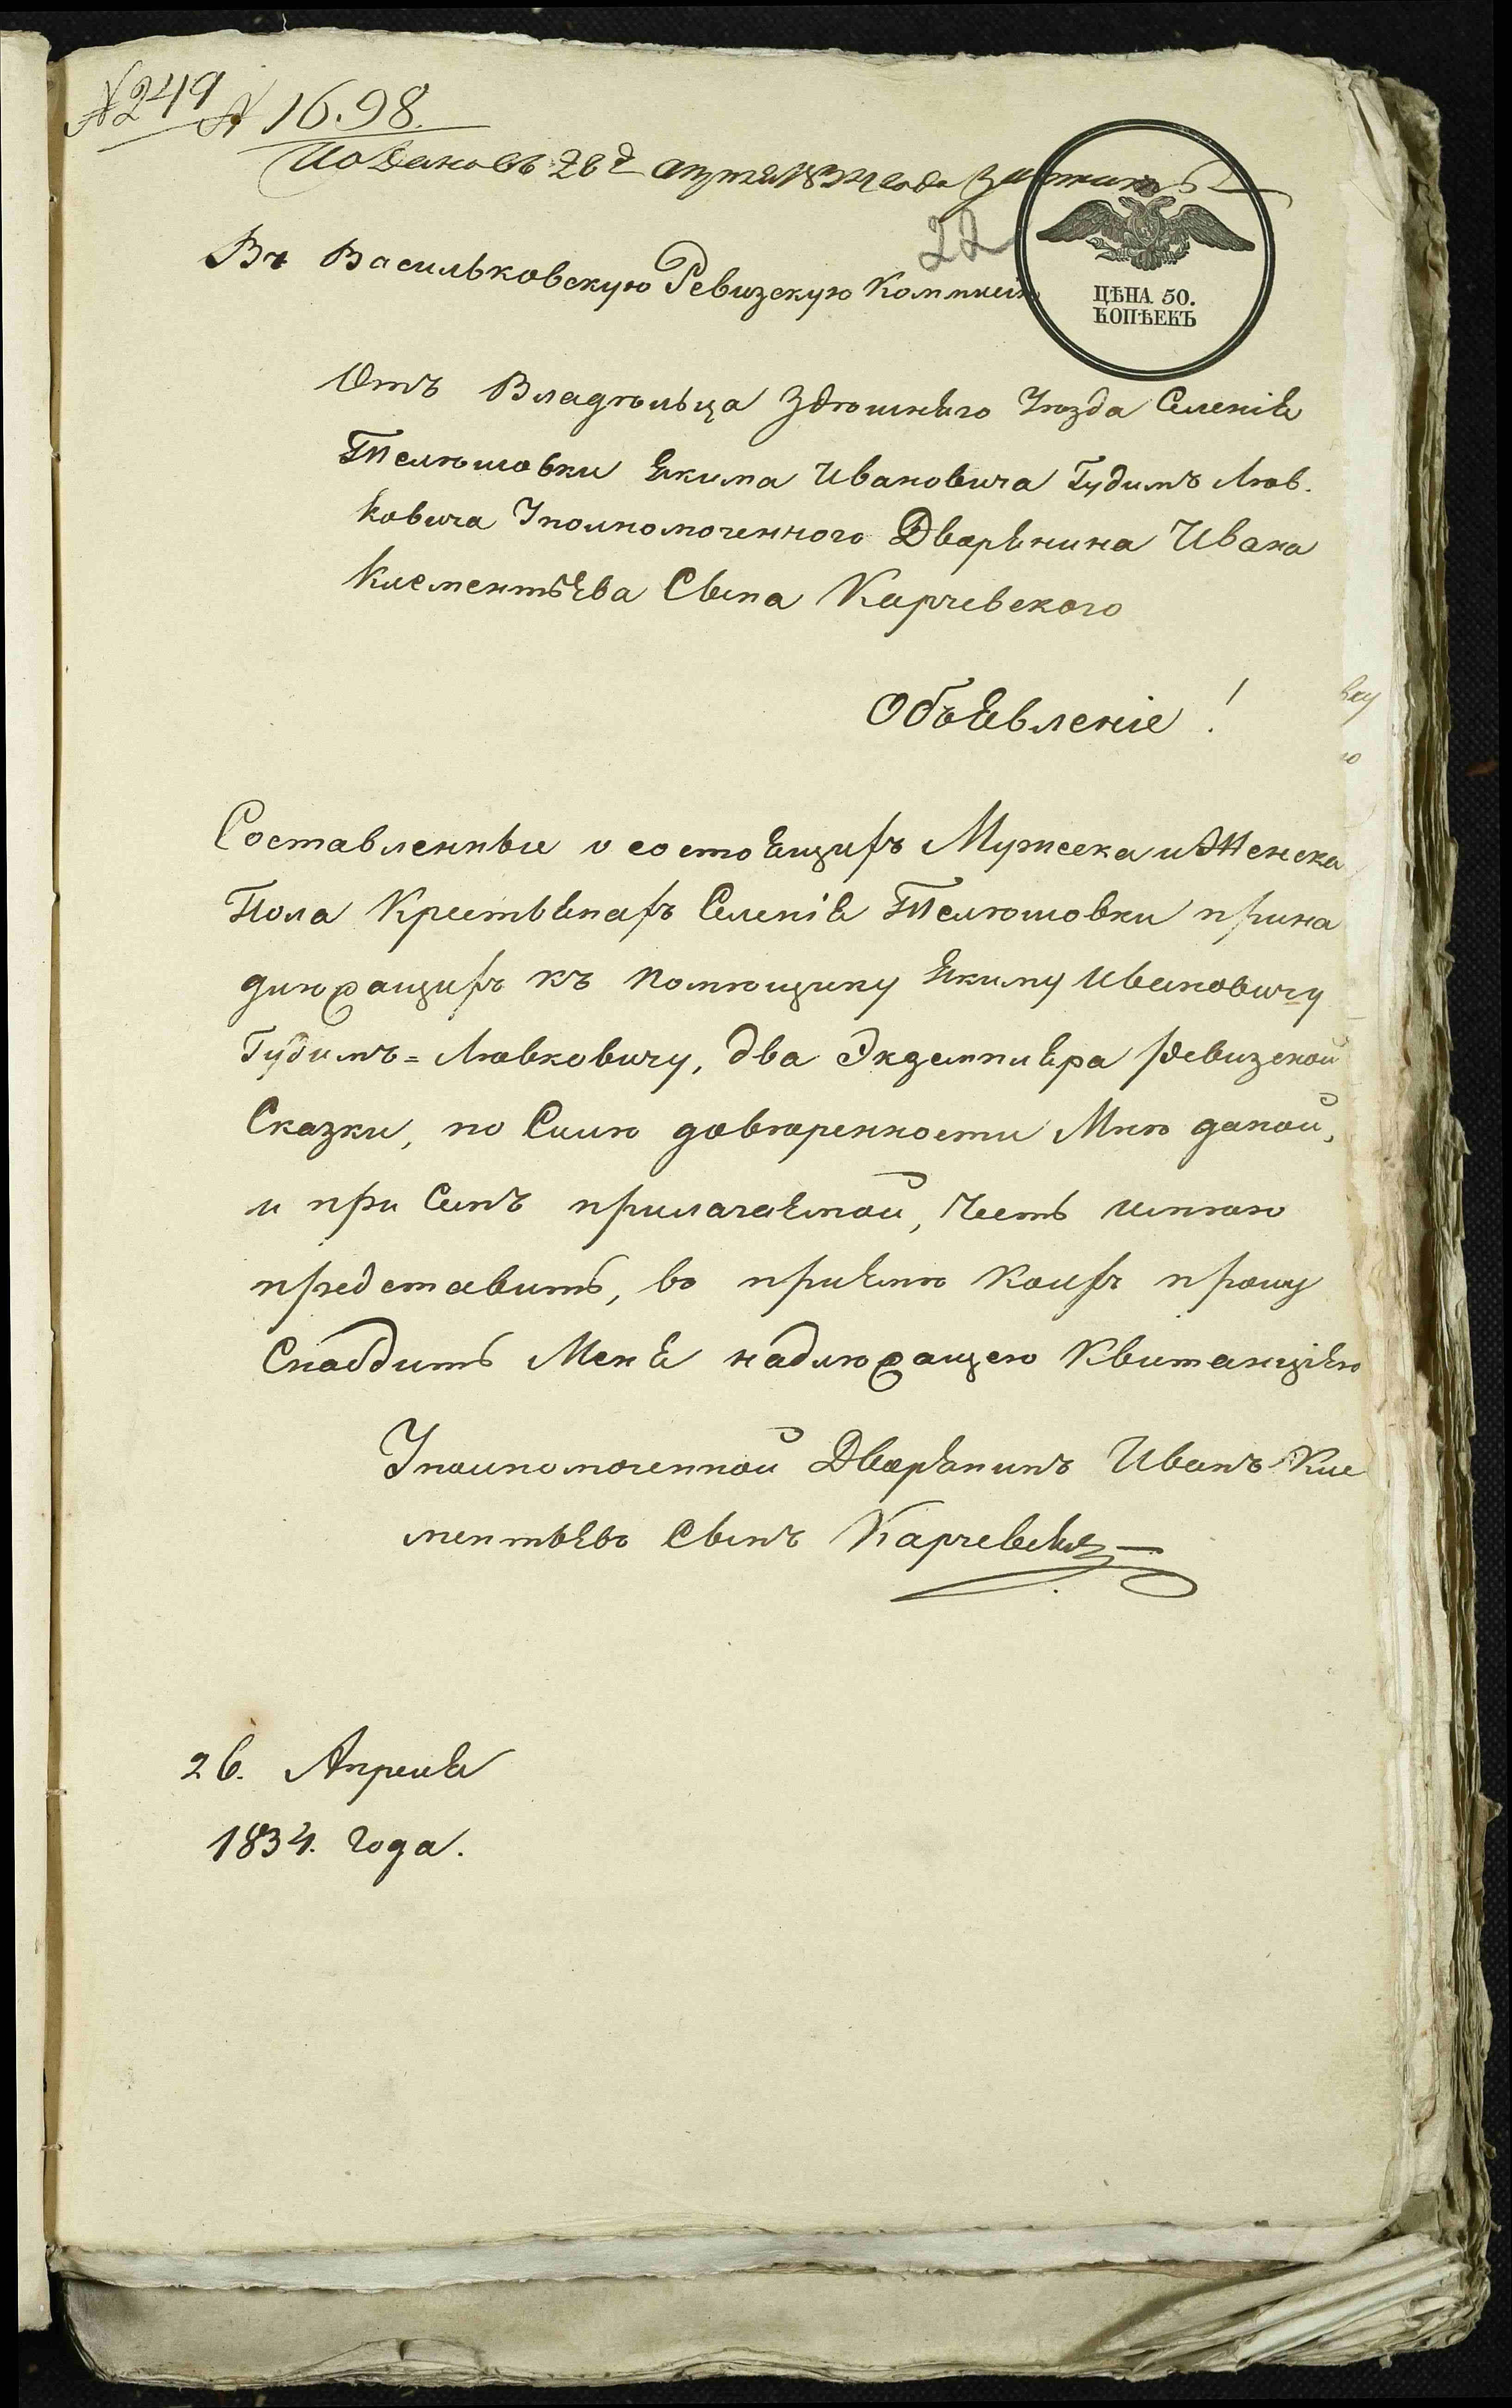 № 249 № 1698.
Подановъ 26 г Апреля 1834 года
22
ЦѢНА 50.
КОПѢЕКЪ
Въ Васильковскую Ревизскую Коммисію
Отъ Владѣльца Здѣшняго Уѣзда Селенія
Телѣшовки Якима Ивановича Гудимъ Лѣв.
ковича Уполномоченного Дворянина Ивана
Клементьева Сына Карчевского
Объявленіе!
Составленные о состоящихъ Мужеска и Женска
Пола Крестьянахъ Селенія Телѣшовки прина
длѣжащихъ къ помѣщику Якиму Ивановичу
Гудимъ=Лѣвковичу, два Экземпляра Ревизской
Сказки, по Силѣ довѣренности Мнѣ даной,
и при Семъ прилагаѣмой, Честь имѣю
представить, во пріемѣ коихъ прошу
Снабдить Меня надлѣжащею Квитанціею
Уполномоченной Дворянинъ Иванъ Кле
ментьевъ Сынъ Карчевскій
26. Апреля
1834. года.